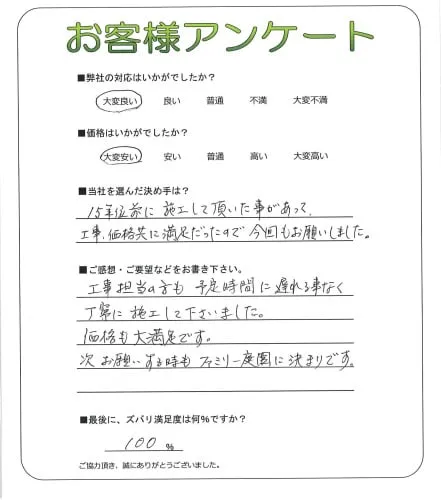 お客様アンケート
■弊社の対応はいかがでしたか？
大変良い 良い 普通 不満 大変不満
■価格はいかがでしたか？
大変安い 安い 普通 高い 大変高い
■当社を選んだ決め手は？
15年位前に施工して頂いた事があって、
工事、価格共に満足だったので今回もお願いしました。
■ご感想・ご要望などをお書き下さい。
工事担当の方も予定時間に遅れる事なく
丁寧に施工して下さいました。
価格も大満足です。
次お願いする時もファミリー庭園に決まりです。
■最後に、ズバリ満足度は何%ですか？
100 %
ご協力頂き、誠にありがとうございました。